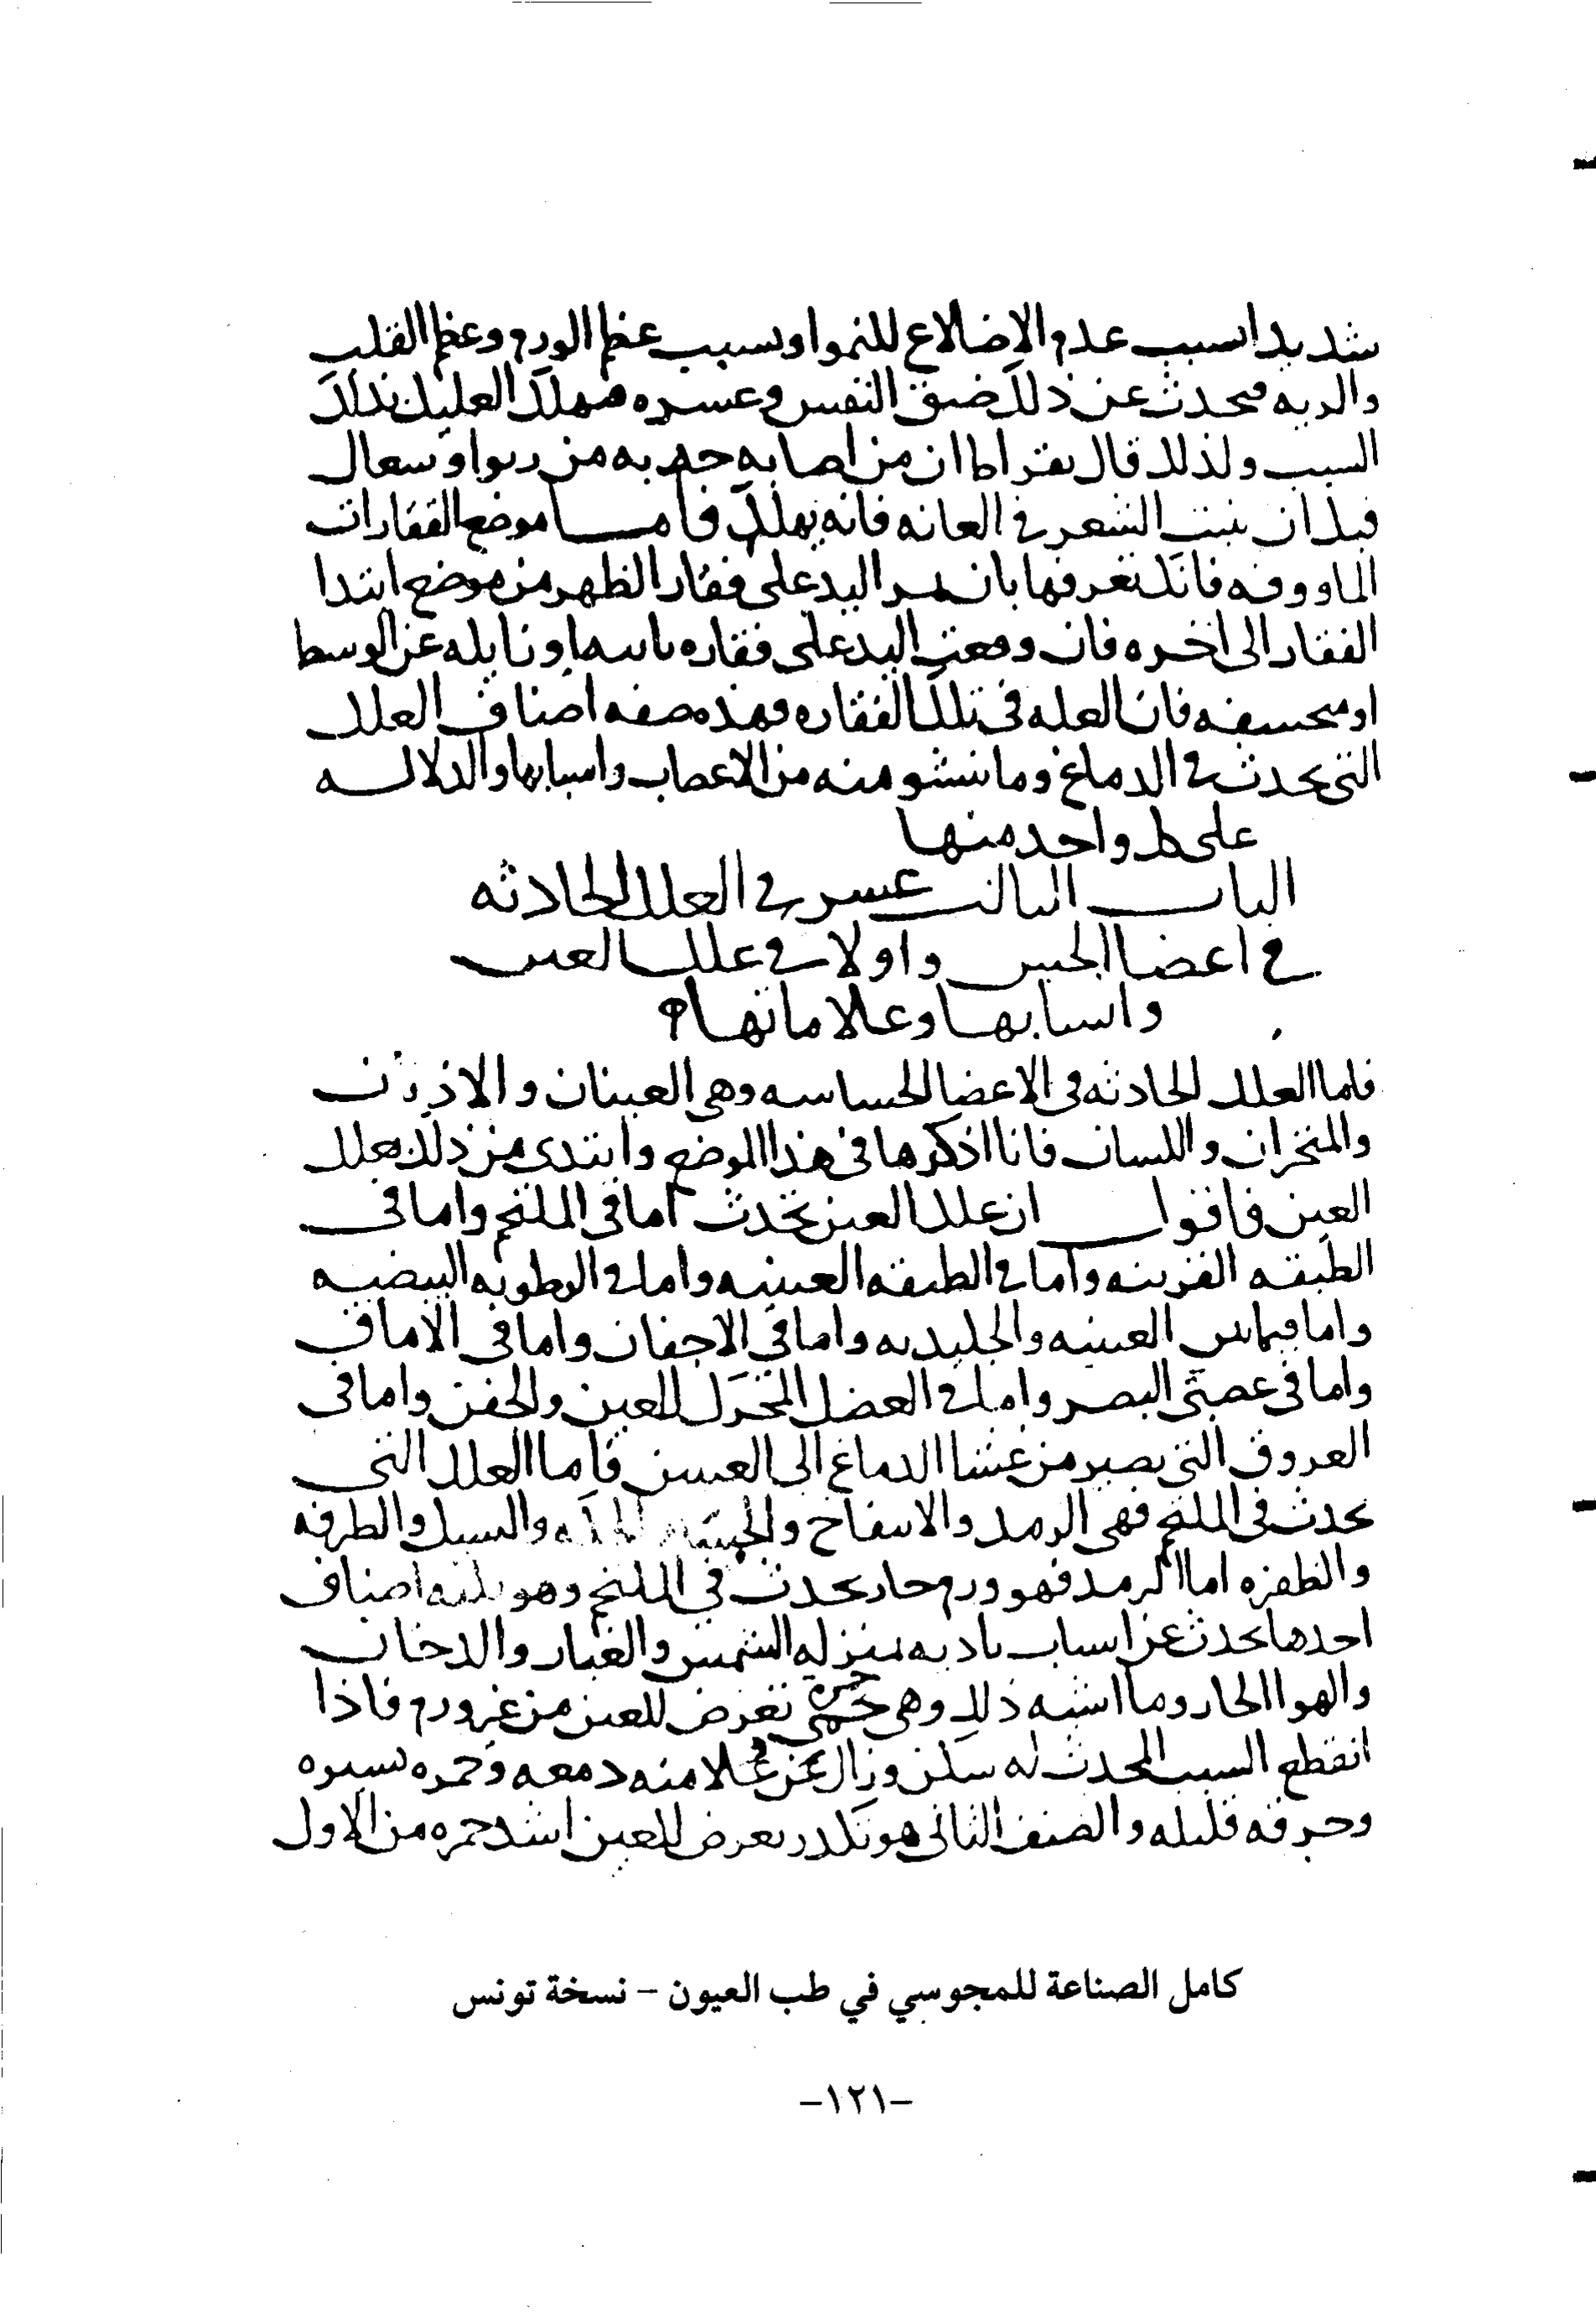 شديدا بسبب عدم الاضلاع للنموا وبسبب عظم الورم وعظم القلب
والريه فيحدث عن ذلك ضيق النفس وعسره فيهلك العليل بذلك
السبب ولذلك قال بقراط ان من اصابه حدبه من ربوا وسعال
قبل ان ينبت الشعر في العانه فانه يهلك فاما موضع الفقارات
الماووفه فانك تعرفها بان تمر اليد على فقار الظهر من موضع ابتدا
الفقار الى اخره فان وقعت اليد على فقاره ناتيه او زايله عن الوسط
او منخسفه فان العله في تلك الفقاره فهذه صفه اصناف العلل
التي تحدث في الدماغ وما ينشو منه من الاعصاب واسبابها والدلاله
على كل واحد منها
الباب الثالث عشر في العلل الحادثه
في اعضا الحس واولا في علل العين
واسبابها وعلاماتها
فاما العلل الحادثه في الاعضا الحساسه وهي العينان والاذنان
والمنخران واللسان فانا اذكرها في هذا الموضع وابتدي من ذلك بعلل
العين فاقول ان علل العين تحدث اما في الملتحم واما في
الطبقه القرنيه واما في الطبقه العنبيه واما في الرطوبه البيضيه
واما فيما بين العنبيه والجليديه واما في الاجفان واما في الاماق
واما في عصبتي البصر واما في العضل المحرك للعين والجفن واما في
العروق التي تصير من غشا الدماغ الى العينين فاما العلل التي
تحدث في الملتحم فهي الرمد والانتفاخ والجسا والحكه والسبل والطرفه
والظفره اما الرمد فهو ورم حار يحدث في الملتحم وهو ثلثه اصناف
احدها يحدث عن اسباب باديه بمنزله الشمس والغبار والدخان
والهوا الحار وما اشبه ذلك وهي حمرة تعرض للعين من غير ورم فاذا
انقطع السبب المحدث له سكن وزال عن وعلامته دمعه وحمره يسيره
وحرقه قليله والصنف الثاني هو تكدر يعرض للعين اشد حمره من الاول
كامل الصناعة للمجوسي في طب العيون - نسخة تونس
-١٢١-